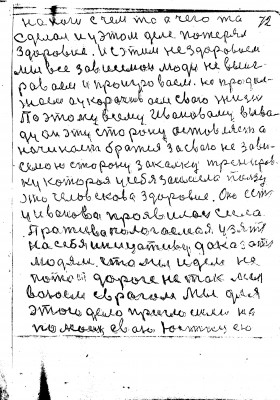 72
на ноги с чем то а чего та
сделал и у этом деле потерял
здоровье. И с этим нездоровьем
мы все зависимои люди не выиг-
роваем и проигроваем. не продол-
жаем а укорачиваем свою жизнь
Поэтому всему Ивановому выво-
ду он эту сторону оставляет а
начинает братся за свою не зави-
семою сторону закалку тренеров-
ку которая у себя зашла пользу
это человекова здоровие. Оно есть
у Иванова проявилась сила.
Противополагаемая узять
на себя инициативу доказать
людям. что мы идем не
по той дороге не так как
воюем с врагом Мы для
этого дело пригласили на
помощь свою